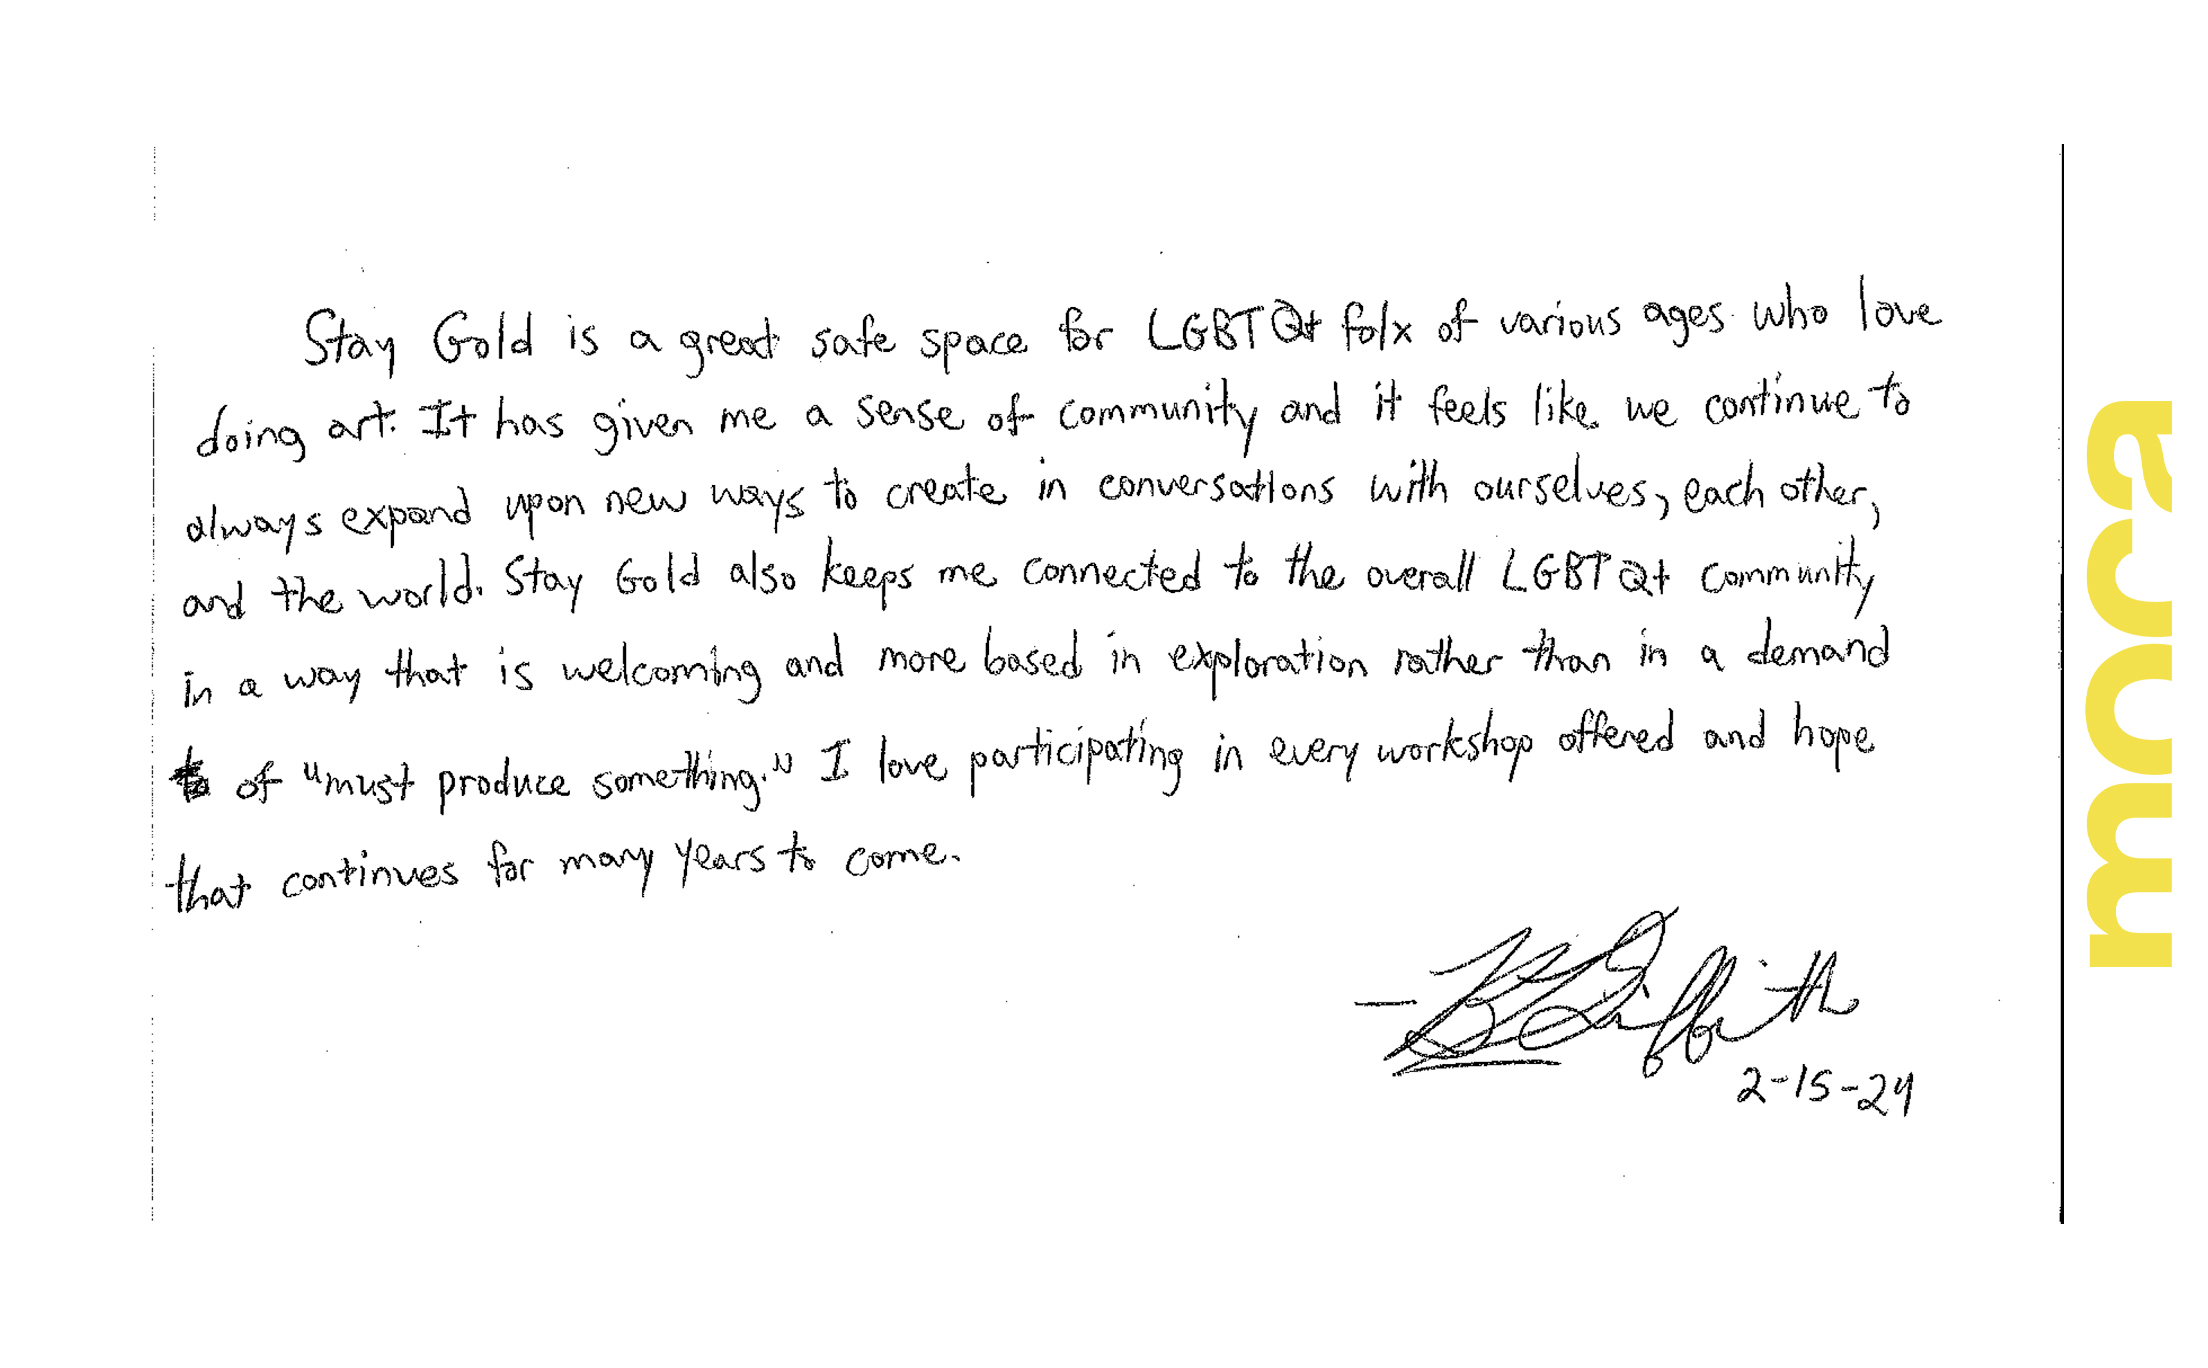 Stay Gold is a great safe space for LGBTQ+ folx of various ages who love
doing art. It has given me a sense of community and it feels like we continue to
always expand upon new ways to create in conversations with ourselves, each other,
and the world. Stay Gold also keeps me connected to the overall LGBTQ+ community
in a way that is welcoming and more based in exploration rather than in a demand
of "must produce something." I love participating in every workshop offered and hope
that continues for many years to come.
Griffith
2-15-24
moca